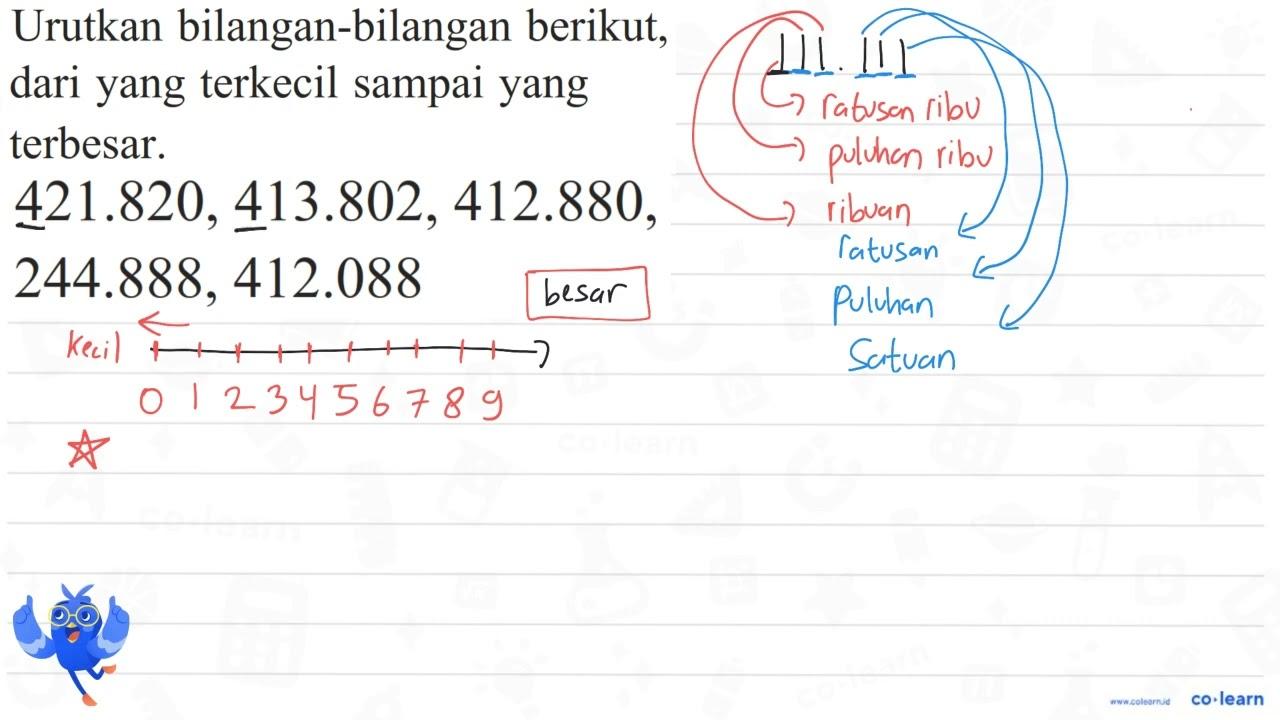 Urutkan bilangan-bilangan berikut,
dari yang terkecil sampai yang
terbesar.
421.820, 413.802, 412.880,
244.888, 412.088
besar
kecil
0 1 2 3 4 5 6 7 8 9
ratusan ribu
puluhan ribu
ribuan
ratusan
Puluhan
Satuan
co·learn
co·learn
co·learn
co·learn
www.colearn.id co·learn